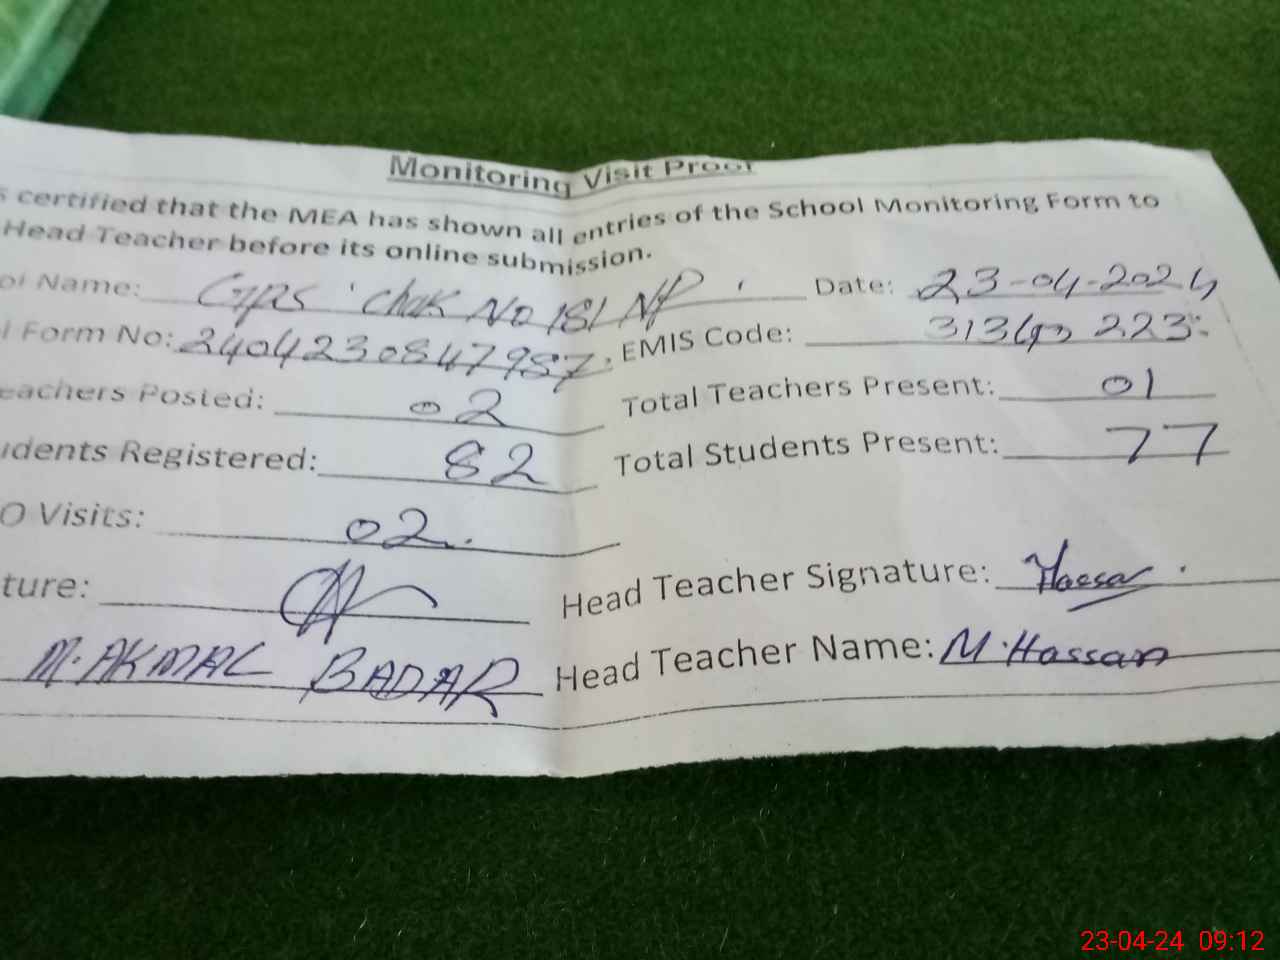 Monitoring Visit Proof
s certified that the MEA has shown all entries of the School Monitoring Form to
Head Teacher before its online submission.
ol Name: GPS Chak No 181 NP Date: 23-04-2024
l Form No: 240423084 7987 EMIS Code: 313 223
eachers Posted: 02 Total Teachers Present: 01
udents Registered: 82 Total Students Present: 77
O Visits: 02
ture: Head Teacher Signature: Hassan
M. AKMAL BADAR Head Teacher Name: M. Hassan
23-04-24 09:12